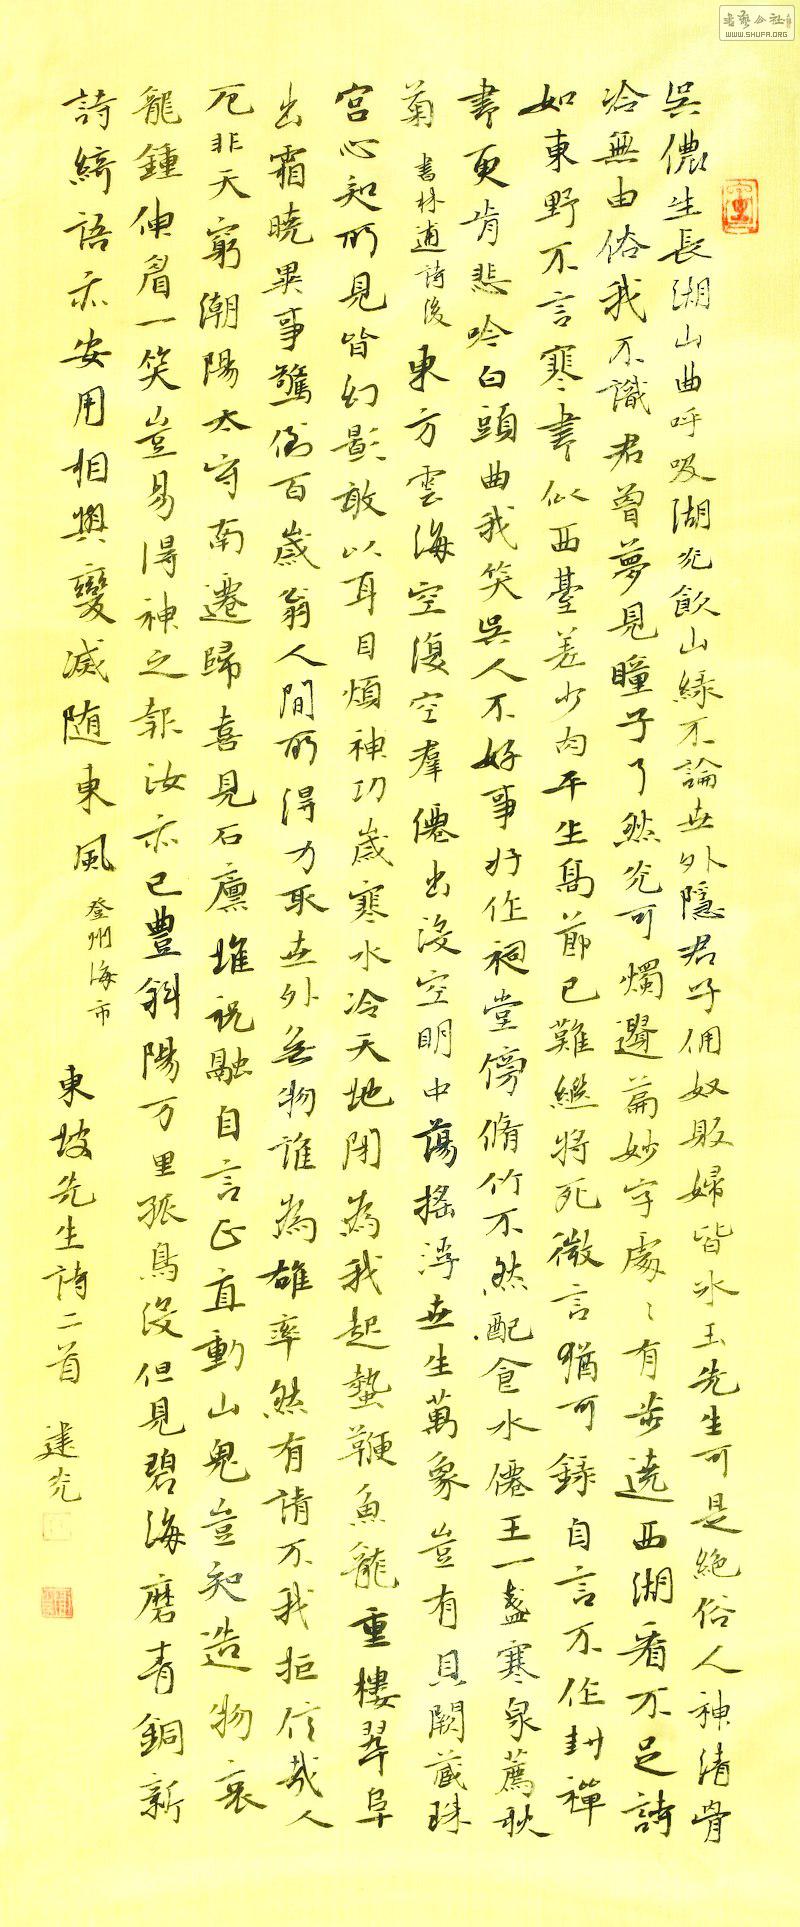 吳儂生長湖山曲呼吸湖光飲山綠不論世外隱君子佣奴販婦皆冰玉先生可是絕俗人神清骨
冷無由俗我不識君曾夢見瞳子了然光可燭遺篇妙字處〻有步遶西湖看不足詩
如東野不言寒書似西臺差少肉平生高節已難繼將死微言猶可錄自言不作封禪
書更肯悲吟白頭曲我笑吳人不好事好作祠堂傍脩竹不然配食水僊王一盞寒泉薦秋
菊 書林逋詩後 東方雲海空復空羣僊出沒空明中蕩搖浮世生萬象豈有貝闕藏珠
宮心知所見皆幻影敢以耳目煩神功歲寒水冷天地閉為我起蟄鞭魚龍重樓翠阜
出霜曉異事驚倒百歲翁人間所得力取世外无物誰為雄率然有請不我拒信哉人
厄非天窮潮陽太守南遷歸喜見石廩堆祝融自言正直動山鬼豈知造物哀
龍鍾伸眉一笑豈易得神之報汝亦已豐斜陽万里孤鳥沒但見碧海磨青銅新
詩綺語亦安用相與變滅随東風 登州海市 東坡先生詩二首 建光
書藝公社
WWW.SHUFA.ORG